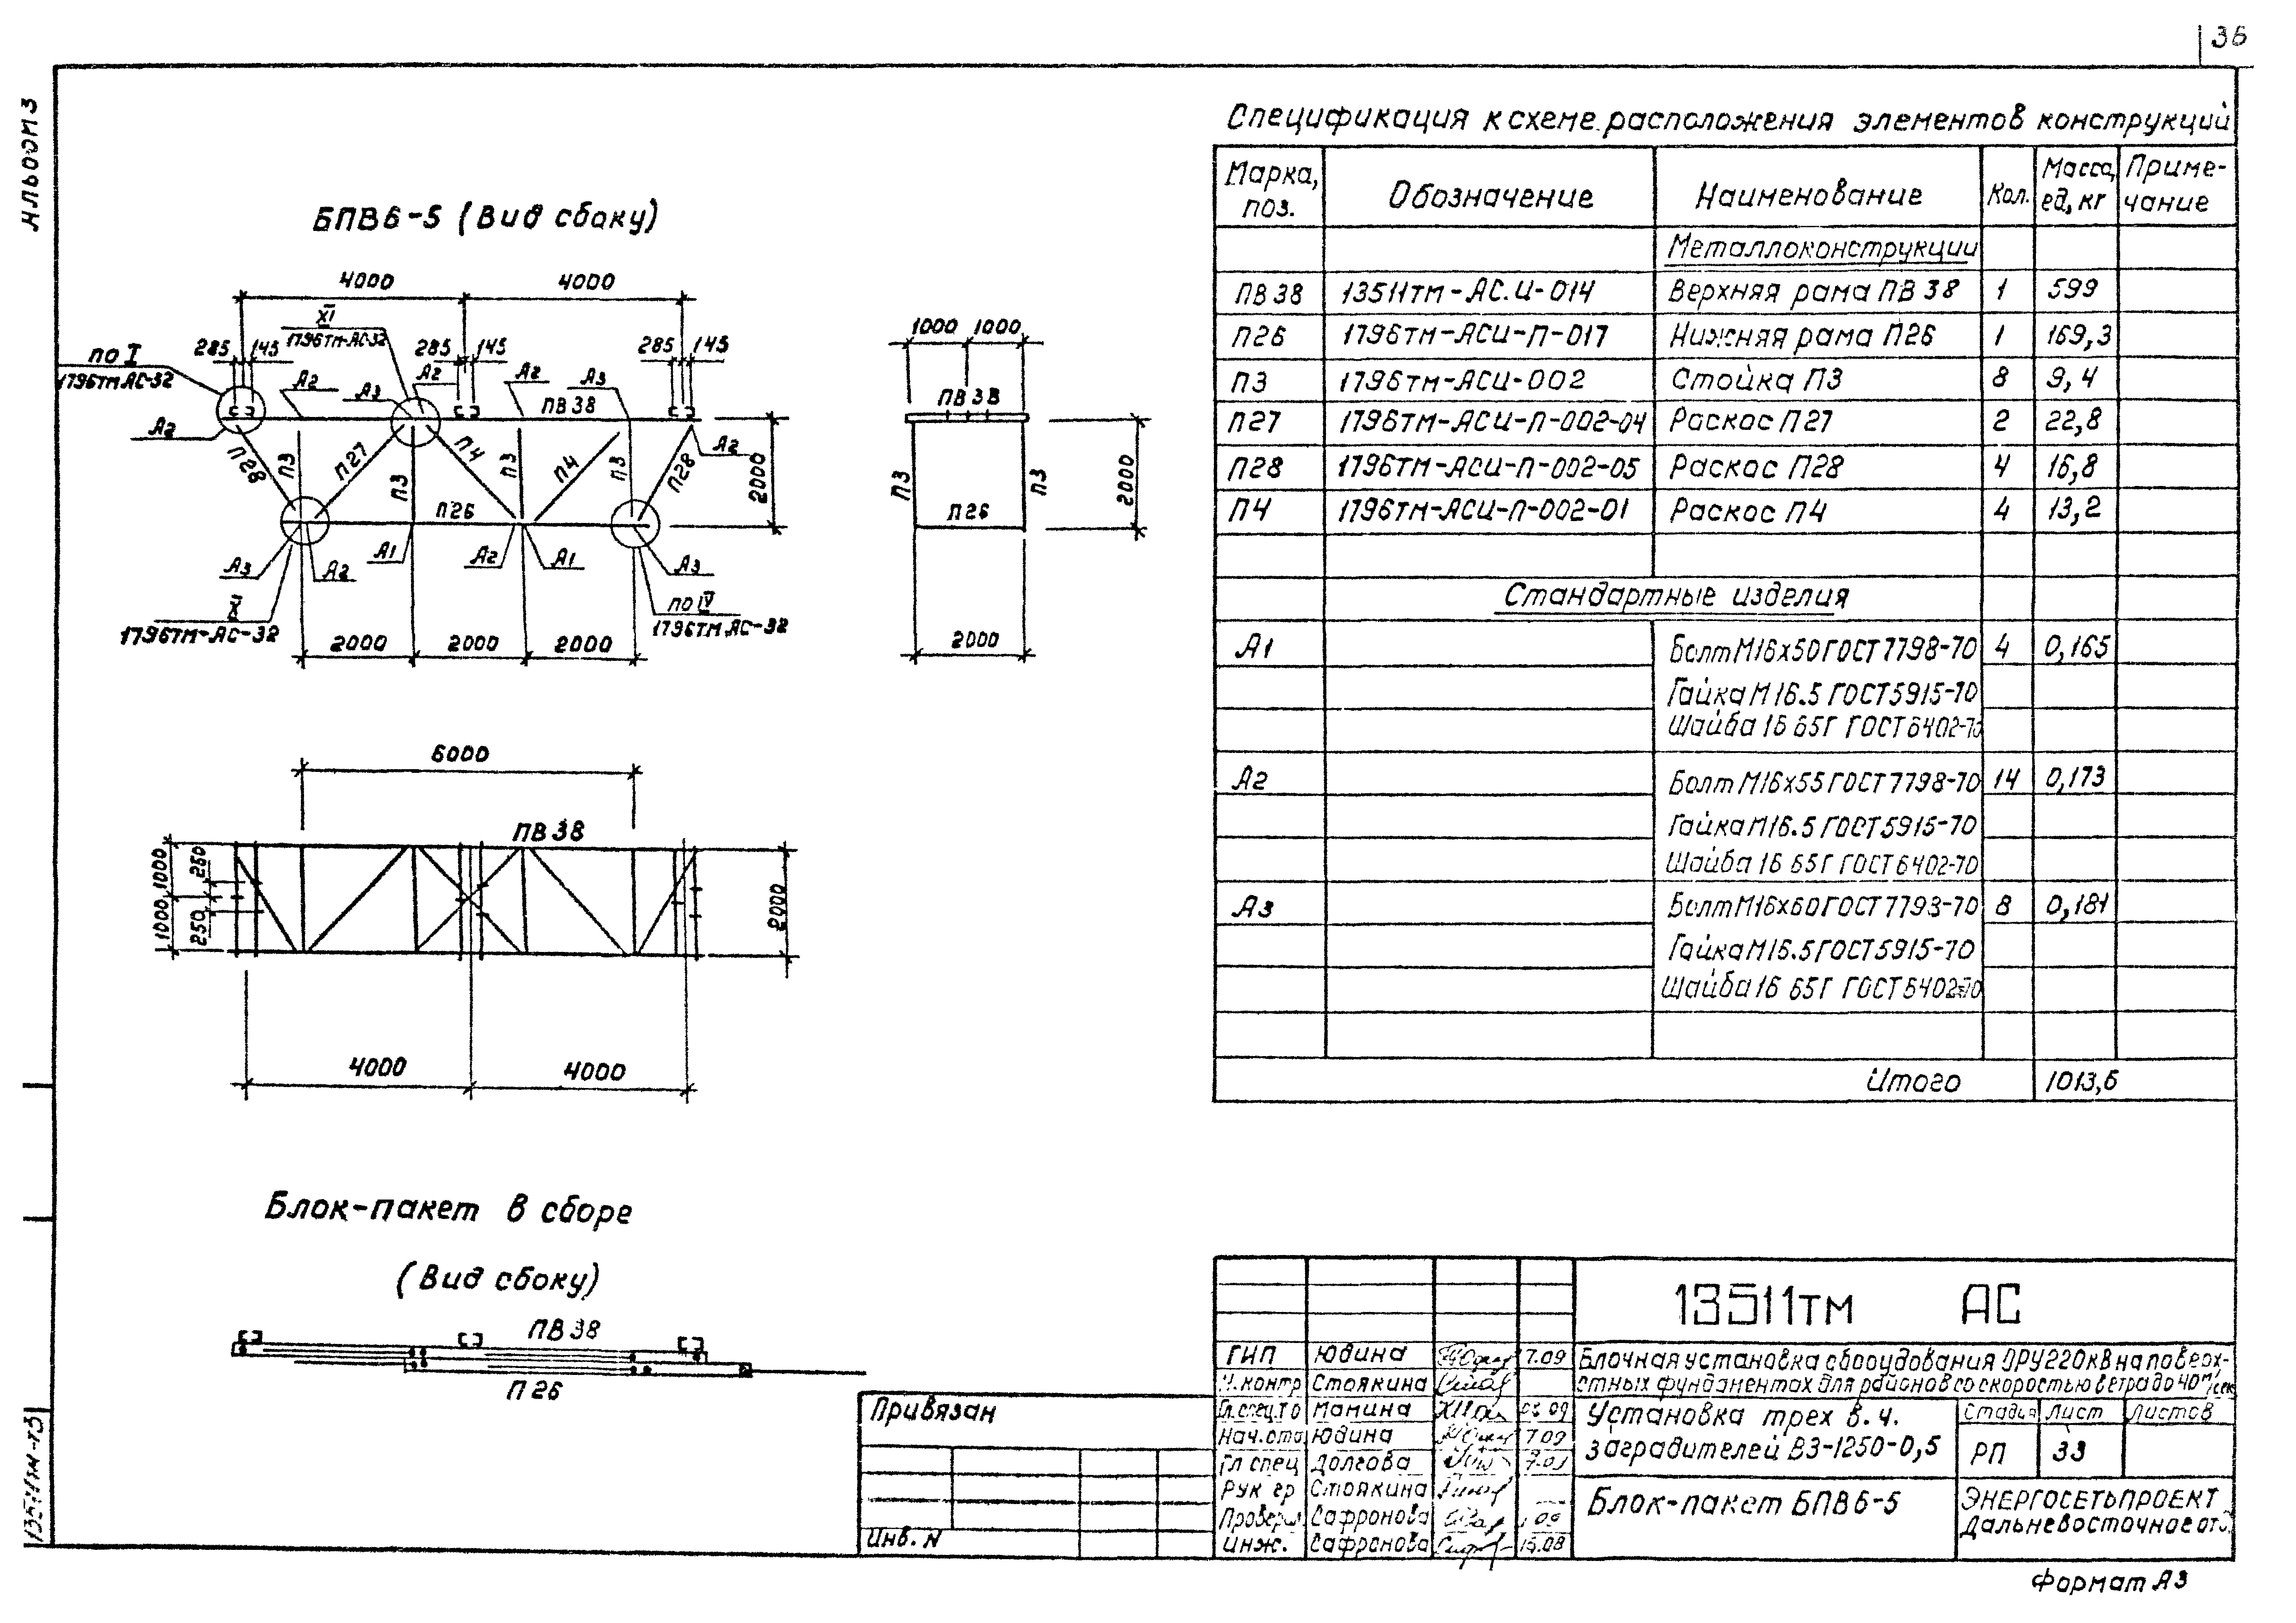 36
Альбом 3
Спецификация к схеме расположения элементов конструкций
БПВ6-5 (Вид сбоку)
4000 4000
XI
1796тм-АС-32
285 145 285 145 285 145
по I
1796тм АС-32
А2 А3 А2 А2 А3
ПВ 38
А2 А2
П28 П3 П27 П3 П4 П3 П4 П3 П28
2000
П26
А3 А2 А1 А2 А1 А3
X
1796тм-АС-32
по IV
1796тм АС-32
2000 2000 2000
1000 1000
ПВ 38
П3 П3
2000
П26
2000
6000
ПВ 38
1000 1000
250 250
2000
4000 4000
Блок-пакет в сборе
(Вид сбоку)
ПВ 38
П 26
Марка, поз. Обозначение Наименование Кол. Масса, ед, кг Приме-чание
Металлоконструкции
ПВ 38 13511тм-АС.И-014 Верхняя рама ПВ 38 1 599
П26 1796тм-АСИ-П-017 Нижняя рама П26 1 169,3
П3 1796тм-АСИ-002 Стойка П3 8 9,4
П27 1796тм-АСИ-П-002-04 Раскос П27 2 22,8
П28 1796тм-АСИ-П-002-05 Раскос П28 4 16,8
П4 1796тм-АСИ-П-002-01 Раскос П4 4 13,2
Стандартные изделия
А1 Болт М16х50 ГОСТ 7798-70 4 0,165
Гайка М16.5 ГОСТ 5915-70
Шайба 16 65Г ГОСТ 6402-70
А2 Болт М16х55 ГОСТ 7798-70 14 0,173
Гайка М16.5 ГОСТ 5915-70
Шайба 16 65Г ГОСТ 6402-70
А3 Болт М16х60 ГОСТ 7798-70 8 0,181
Гайка М16.5 ГОСТ 5915-70
Шайба 16 65Г ГОСТ 6402-70
Итого 1013,6
13511тм АС
ГИП Юдина 7.09
Н.контр Стоякина
Гл.спец.ТО Мамина 09
Нач.отд Юдина 7.09
Гл спец Долгова
Рук гр Стоякина
Проверил Сафронова
Инж. Сафронова 15.08
Блочная установка оборудования ОРУ 220 кВ на поверх-
стных фундаментах для районов со скоростью ветра до 40 м/сек
Установка трех в.ч.
заградителей ВЗ-1250-0,5
Стадия Лист Листов
РП 33
Блок-пакет БПВ6-5
ЭНЕРГОСЕТЬПРОЕКТ
Дальневосточное отд.
Привязан
Инв. N
13511тм-т3
Формат А3